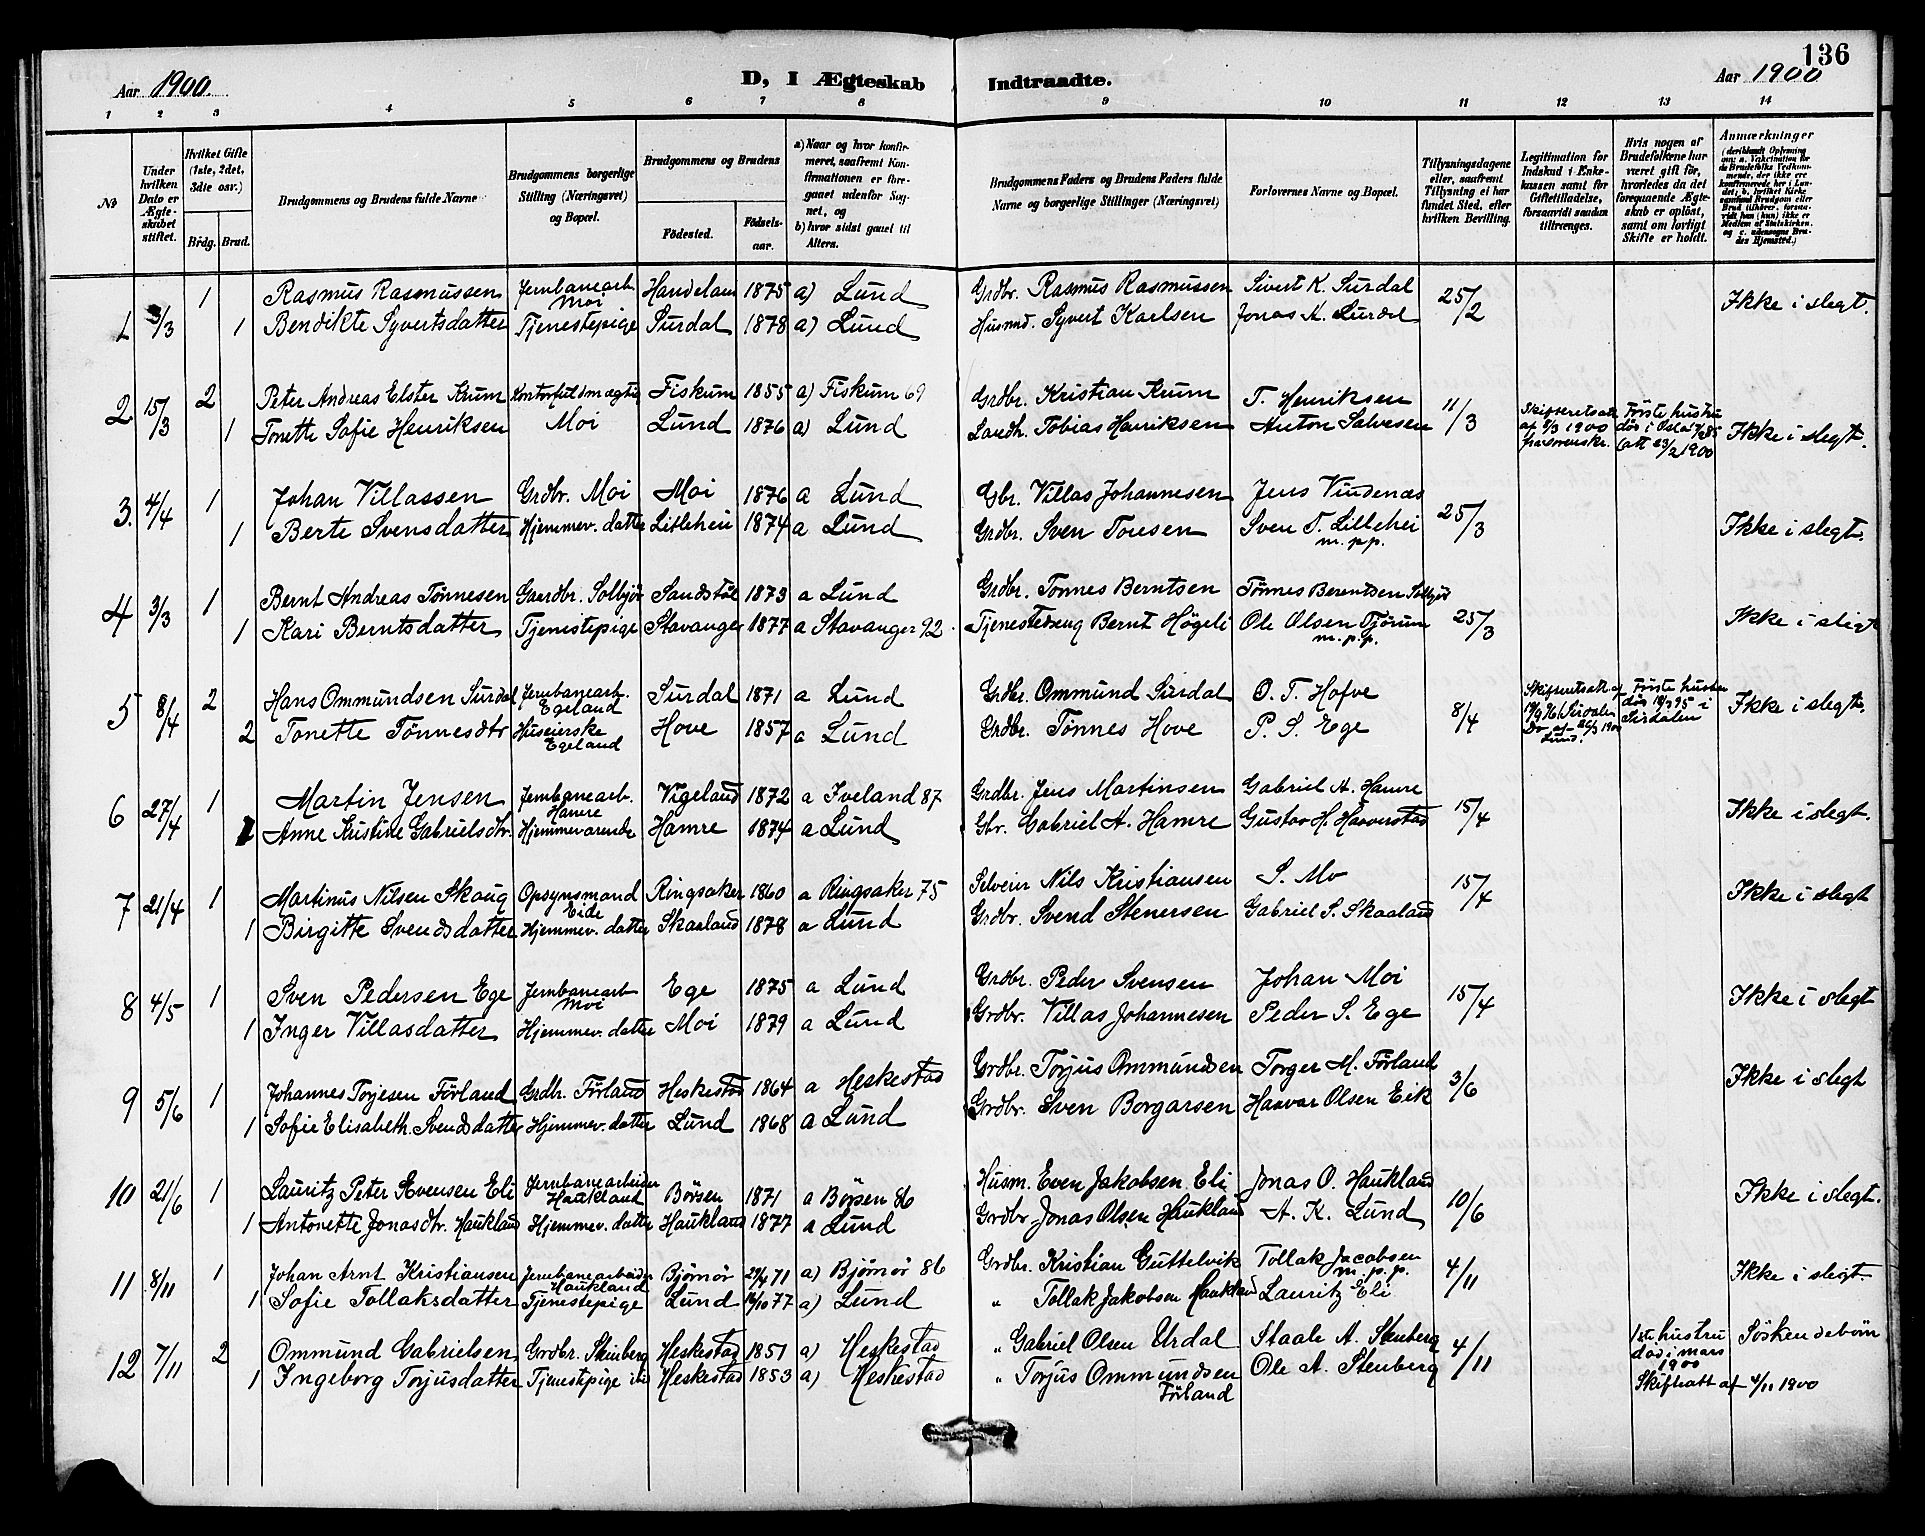 136
Aar 1900. D, I Ægteskab Indtraadte. Aar 1900
1 2 3 4 5 6 7 8 9 10 11 12 13 14
No
Under hvilken Dato er Ægteskabet stiftet.
Hvilket Gifte (1ste, 2det, 3die osv.)
Brdg. Brud.
Brudgommens og Brudens fulde Navne
Brudgommens borgerlige Stilling (Næringsvei) og Bopæl.
Brudgommens og Brudens
Fødested. Fødselsaar.
a) Naar og hvor konfirmeret, saafremt Konfirmationen er foregaaet udenfor Sognet, og
b) hvor sidst gaaet til Alters.
Brudgommens Faders og Brudens Faders fulde Navne og borgerlige Stillinger (Næringsvei)
Forlovernes Navne og Bopæl.
Tillysningsdagene eller, saafremt Tillysning ei har fundet Sted, efter hvilken Bevilling.
Legitimation for Indskud i Enkekassen samt for Giftetilladelse, forsaavidt saadan tiltrænges.
Hvis nogen af Brudefolkene har været gift før, hvorledes da det foregaaende Ægteskab er opløst, samt om lovligt Skifte er holdt.
Anmærkninger
1 3/3 1 Rasmus Rasmussen Jernbanearb. Moi Handeland 1875 a) Lund Grdbr. Rasmus Rasmussen Sivert K. Surdal 25/2 Ikke i slegt.
1 Bendikte Syvertsdatter Tjenestepige Surdal 1878 a) Lund Husmd. Syvert Karlsen Jonas A. Surdal
2 15/3 2 Peter Andreas Elster Krum Kontorfuldmægtig Fiskum 1855 a) Fiskum 69 Grdbr. Kristian Krum T. Henriksen 11/3 Skifteretsatt. af 5/3 1900 Første hustru død i Oslo
1 Tonette Sofie Henriksen Moi Lund 1876 a) Lund Landh. Tobias Henriksen Anton Salvesen (att 23/2 1900 Ikke i slegt.
3. 4/4 1 Johan Villassen Grdbr. Moi Moi 1876 a Lund Gbr. Villas Johannesen Jens Vindenæs 25/3
1 Berte Svensdatter Hjemmev. datter Litlehei 1874 a Lund Grdbr. Sven Tonesen Sven T. Lillehei m.p.p. Ikke i slegt.
4 3/3 1 Bernt Andreas Tønnesen Gaardbr. Solbjør Sandstøl 1873 a Lund Grdbr. Tønnes Berntsen Tønnes Berentsen Solbjør 25/3
1 Kari Berntsdatter Tjenestepige Stavanger 1877 a Stavanger 92. Tjenestedreng Bernt Høgeli Ole Olsen Tjørum m.p.p. Ikke i slegt
5 8/4 2 Hans Ommundsen Surdal Jernbanearb. Egeland Surdal 1871 a Lund Grdbr. Ommund Surdal O. T. Hofve 8/4 Skifteretsatt. af Sirdalen Do af 26/3 1900 Lund. Første hustru død 95 i Sirdalen Ikke i slegt.
2 Tonette Tønnesdtr Huseierske Egeland Hove 1857 a Lund Grdbr. Tønnes Hove P. S. Ege
6 27/4 1 Martin Jensen Jernbanearb. Hamre Vigeland 1872 a Iveland 87 Grdbr. Jens Martinsen Gabriel A. Hamre 15/4 Ikke i slegt.
1 Anne Kristine Gabrielsdtr. Hjemmeværende Hamre 1874 a Lund Gbr. Gabriel A. Hamre Gustav H. Haaverstad
7 21/4 1 Martinus Nilsen Skaug Opsynsmand Eide Ringsaker 1860 a Ringsaker 75 Selveier Nils Kristiansen S. Mo 15/4 Ikke i slegt
1 Birgitte Svendsdatter Hjemmev. datter Skaaland 1878 a Lund Grdbr. Svend Stenersen Gabriel S. Skaaland
8 4/5 1 Sven Pedersen Ege Jernbanearb Moi Ege 1875 a Lund Grdbr. Peder Svensen Johan Moi 15/4 Ikke i slegt
1 Inger Villasdatter Hjemmev. datter Moi 1879 a Lund Grdbr. Villas Johannesen Peder S. Ege
9 5/6 1 Johannes Torjesen Førland Grdbr. Førland Heskestad 1864 a Heskestad Grdbr. Torjus Ommundsen Torger M. Førland 3/6 Ikke i slegt
1 Sofie Elisabeth Svendsdatter Hjemmev. datter Lund 1868 a Lund Grdbr. Sven Borgarsen Haavar Olsen Eik
10 21/6 1 Lauritz Peter Evensen Eli Jernbanearbeider Haukland Børsen 1871 a Børsen 86 Husm. Even Jakobsen Eli Jonas O. Haukland 10/6 Ikke i slegt.
1 Antonette Jonasdtr. Haukland Hjemmev. datter Haukland 1877 a Lund Grdbr Jonas Olsen Haukland A. K. Lund
11 8/11 1 Johan Arnt Kristiansen Jernbanearbeider Haukland Bjørnør 29/4 71 a) Bjørnør 86 Grdbr. Kristian Guttelvik Tollak Jacobsen m.p.p. 4/11 Ikke i slegt.
1 Sofie Tollaksdatter Tjenestepige Lund 14/10 77 a) Lund " Tollak Jakobsen Haukland Lauritz Eli
12 7/11 2 Ommund Gabrielsen Grdbr. Stenberg Heskestad 1851 a) Heskestad " Gabriel Olsen Urdal Staale A. Stenberg 4/11 1ste hustru død i mars 1900 Søskendebørn
1 Ingeborg Torjusdatter Tjenestepige ibd Heskestad 1853 a) Heskestad " Torjus Ommundsen Førland Ole A. Stenberg Skifteatt af 4/11 1900